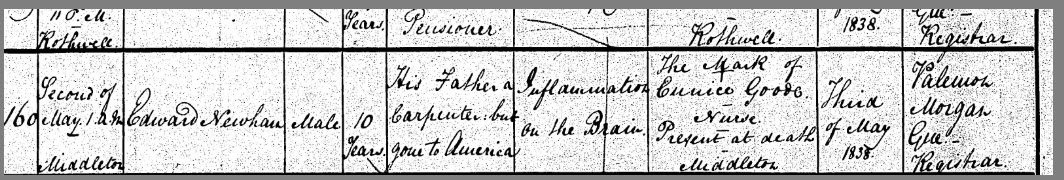 11 P.M.
Rothwell.
Years.
Pensioner.
Rothwell.
1838.
Registrar.
160
Second of
May. 1 a.m
Middleton
Edward Newhan
Male
10
Years.
His Father a
Carpenter: but
gone to America
Inflammation
on the Brain.
The Mark of
Eunice Goods.
Nurse.
Present at death
Middleton
Third
of May
1838.
Valemon
Morgan
Registrar.